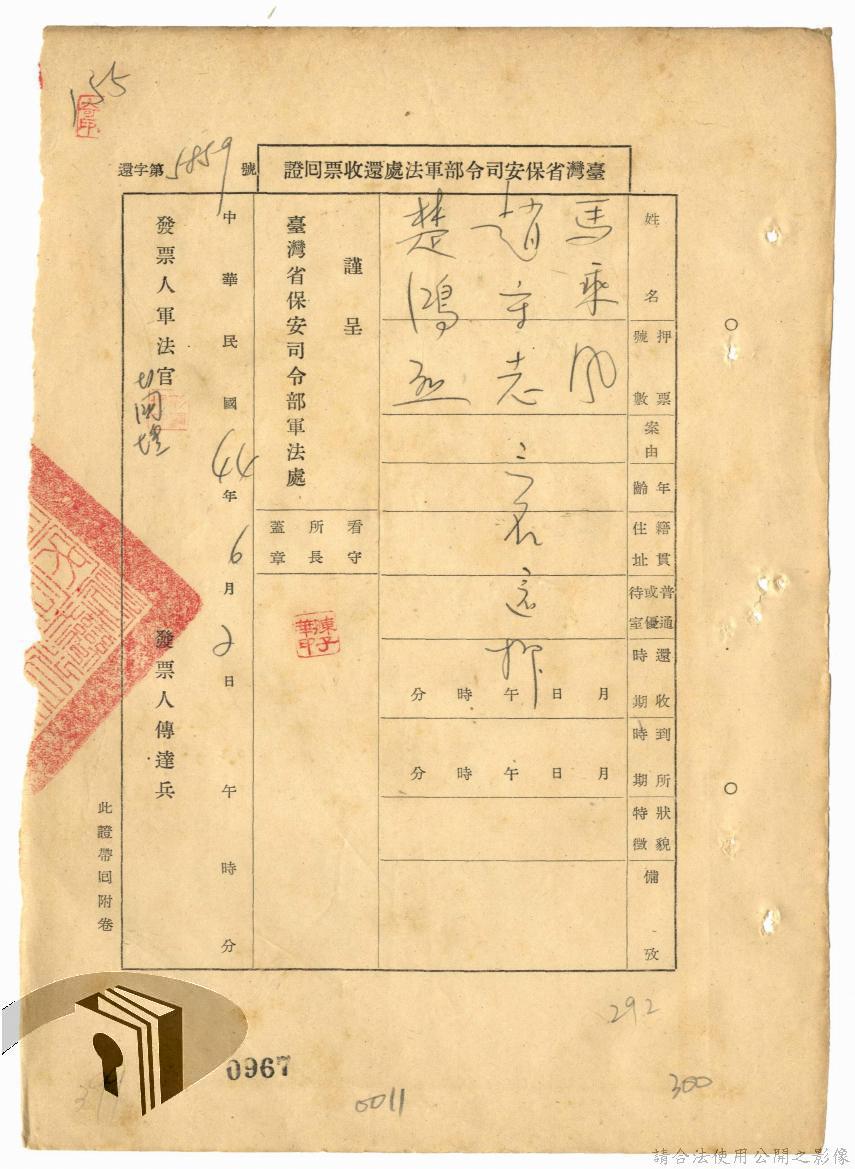 155
還字第5859號
臺灣省保安司令部軍法處還收票回證
姓名
馬乘風
趙守志
楚鴻烈
押票號數
案由
年齡
籍貫住址
普通或優待室
還收時期
月日午時分
到所時期
月日午時分
狀貌特徵
備攷
三名還押
謹呈
臺灣省保安司令部軍法處
看守所長蓋章
陳子華印
中華民國44年6月2日午時分
發票人軍法官
發票人傳達兵
此證帶回附卷
292
0967
0011
300
請合法使用公開之影像